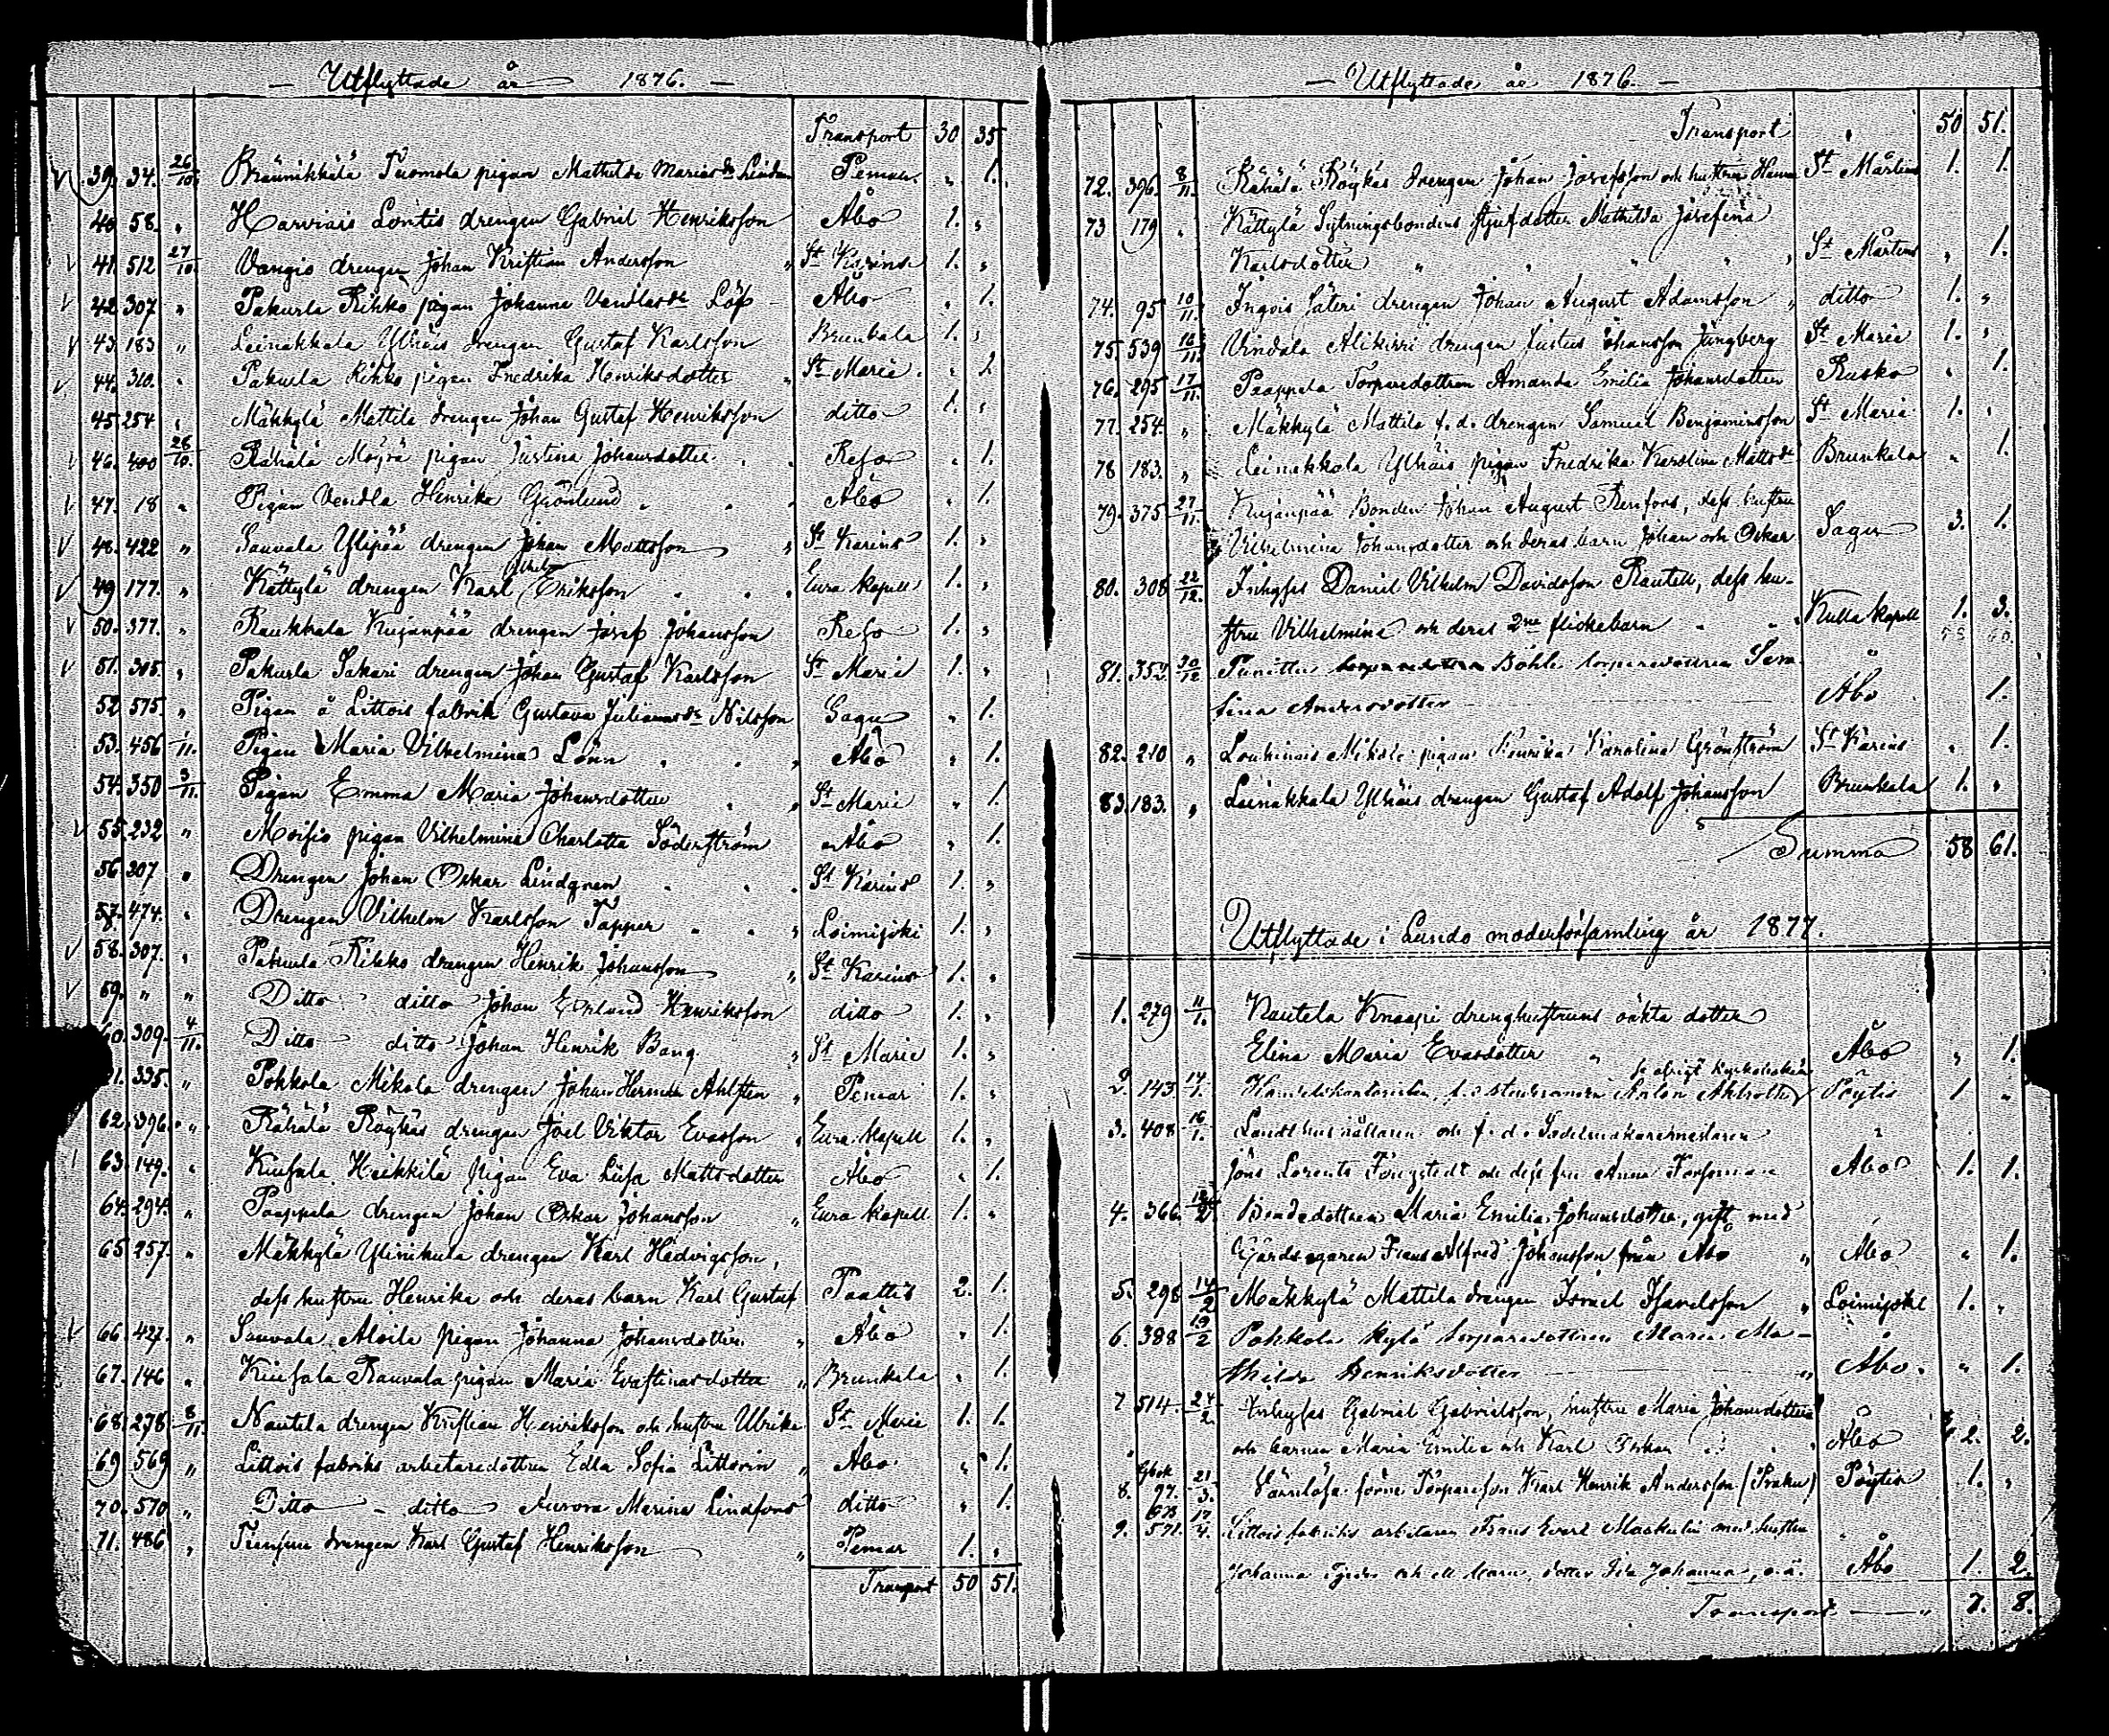 Utflyttade år 1876.
Transport 30 35
39. 34. 26/10. Bräunikkälä Tuomola pigan Mathilda Mariasdr Pemar „ 1.
40 58. „ Harvais Lontis drengen Gabriel Henriksson Åbo 1. „
41. 512 27/10. Vangio drengen Johan Kristian Andersson „ St Karins 1. „
42 307 „ Pakurla Rihko pigan Johanna Vendlasdr Löf Åbo „ 1.
43. 183 „ Leinakkala Ylhäis drengen Gustaf Karlsson Brunkala 1. „
44. 320. „ Pakurla Rihko pigan Fredrika Henriksdotter „ St Marie „ 1.
45 254 „ Mäkkylä Mattila drengen Johan Gustaf Henriksson ditto 1. „
46. 400 28/10. Rähälä Möjrä pigan Justina Johansdotter Reso „ 1.
47. 18 „ Pigan Vendla Henrika Grönlund Åbo „ 1.
48. 422 „ Sauvala Ylipää drengen Johan Mattsson „ St Karins 1. „
49 177. „ Kättylä drengen Karl Vilhelm Eriksson Eura Kapell 1. „
50. 377. „ Raukkala Kujanpää drengen Josef Johansson Reso 1. „
51. 305. „ Pakurla Sakari drengen Johan Gustaf Karlsson St Marie 1. „
52 575. „ Pigan å Littois fabrik Gustava Julianasdr Nilsson Sagu „ 1.
53. 456 1/11. Pigan Maria Vilhelmina Lönn Åbo „ 1.
54. 350 3/11. Pigan Emma Maria Johansdotter „ St Marie „ 1.
55. 232 „ Moisio pigan Vilhelmina Charlotta Söderström Åbo „ 1.
56. 307 „ Drengen Johan Oskar Lindgren St Karins 1. „
57. 474. „ Drengen Vilhelm Karlsson Tapper „ Loimijoki 1. „
58. 307. „ Pakurla Rihko drengen Henrik Johansson „ St Karins 1. „
59. „ „ Ditto ditto Johan Edlund Henriksson ditto 1. „
60. 309. 4/11. Ditto ditto Johan Henrik Bang „ St Marie 1. „
61. 335. „ Pokkola Mikola drengen Johan Herman Ahlsten „ Pemar 1. „
62. 396. „ Rähälä Röykäs drengen Joel Viktor Evasson „ Eura Kapell 1. „
63. 149. „ Kuisala Heikkilä pigan Eva Lisa Mattsdotter Åbo „ 1.
64. 294. „ Paappala drengen Johan Oskar Johansson „ Eura Kapell 1. „
65. 257. „ Mäkkylä Ylinikula drengen Karl Hedvigsson,
dess hustru Henrika och deras barn Karl Gustaf Paattis 2. 1.
66 427. „ Sauvala Aloila pigan Johanna Johansdotter „ Åbo „ 1.
67. 146 „ Kuisala Rauvala pigan Maria Evastinasdotter „ Brunkala „ 1.
68. 278 8/11. Nautela drengen Kristian Henriksson och hustru Ulrika St Marie 1. 1.
69 569 „ Littois fabriks arbetaredottren Edla Sofia Littorin „ Åbo „ 1.
70. 570 „ Ditto – ditto Aurora Marina Lindfors ditto „ 1.
71. 486 „ drengen Karl Gustaf Henriksson „ Pemar 1. „
Transport 50 51.
Utflyttade år 1876.
Transport „ 50 51.
72. 396 8/11. Rähälä Röykäs drengen Johan Josefsson och hustru Hanna St Mårtens 1. 1.
73 179 „ Kättylä Sytningsbondens stjufdotter Mathilda Josefina
Karlsdotter „ „ „ „ St Mårtens „ 1.
74. 95 10/11. Ingois Säteri drengen Johan August Adamsson „ ditto 1. „
75. 539 16/11. Vindala Alikirri drengen Justus Johansson Ljungberg St Marie 1. „
76. 295 17/11. Paappala Torparedottren Amanda Emilia Johansdotter Rusko „ 1.
77. 254. „ Mäkkylä Mattila f.d. drengen Samuel Benjaminsson St Marie 1. „
78 183. „ Leinakkala Ylhäis pigan Fredrika Karolina Mattsdr Brunkala „ 1.
79. 375 27/11. Kujanpää Bonden Johan August Renfors, dess hustru
Vilhelmina Johansdotter och deras barn Johan och Oskar Sagu 3. 1.
80. 308 22/12. Inhyses Daniel Vilhelm Davidsson Rautell, dess hu-
stru Vilhelmina och deras 2ne flickebarn Kulla Kapell 1. 3.
81. 352. 30/12 Punittu Böhle torparedottren Sera-
fina Andersdotter Åbo 1.
82. 210 „ Loukinais Mikola pigan Henrika Karolina Grönström St Karins „ 1.
83. 183. „ Leinakkala Ylhäis drengen Gustaf Adolf Johansson Brunkala 1. „
Summa 58 61.
Utflyttade i Lundo moderförsamling år 1877.
1. 279 11/1. Nautela Knaapi drenghustruns oäkta dotter
Elina Maria Evasdotter „ Åbo „ 1.
2. 143. 14/1. f.d. studeranden Anton Pöytis 1 „
3. 408 16/1. och f.d. Sadelmakaremästaren
Jöns Lorents och dess fru Anna Åbo 1. 1.
4. 366. 12/2 Bondedottren Maria Emilia Johansdotter, gift med
Gårdsegaren Frans Alfred Johansson från Åbo „ Åbo „ 1.
5. 298 14/2 Mäkkylä Mattila drengen Israel Israelsson „ Loimijoki 1. „
6. 388 19/2 Pokkola Kylä torparedottren Maria Ma-
thilda Henriksdotter „ Åbo. „ 1.
7 514. 24/2. Inhyses Gabriel Gabrielsson, hustru Maria Johansdotter
och barnen Maria Emilia och Karl Oskar Åbo 2. 2.
8. 97. 21/3. Värnlösa förre Torparesson Karl Henrik Andersson (Prako) Pöytis 1. „
9. 571. 17/4. Littois fabriks arbetaren Frans Evert med hustru
Johanna och ett barn, dotter Ida Johanna, o.ä. Åbo 1. 2.
Transport „ 7. 8.